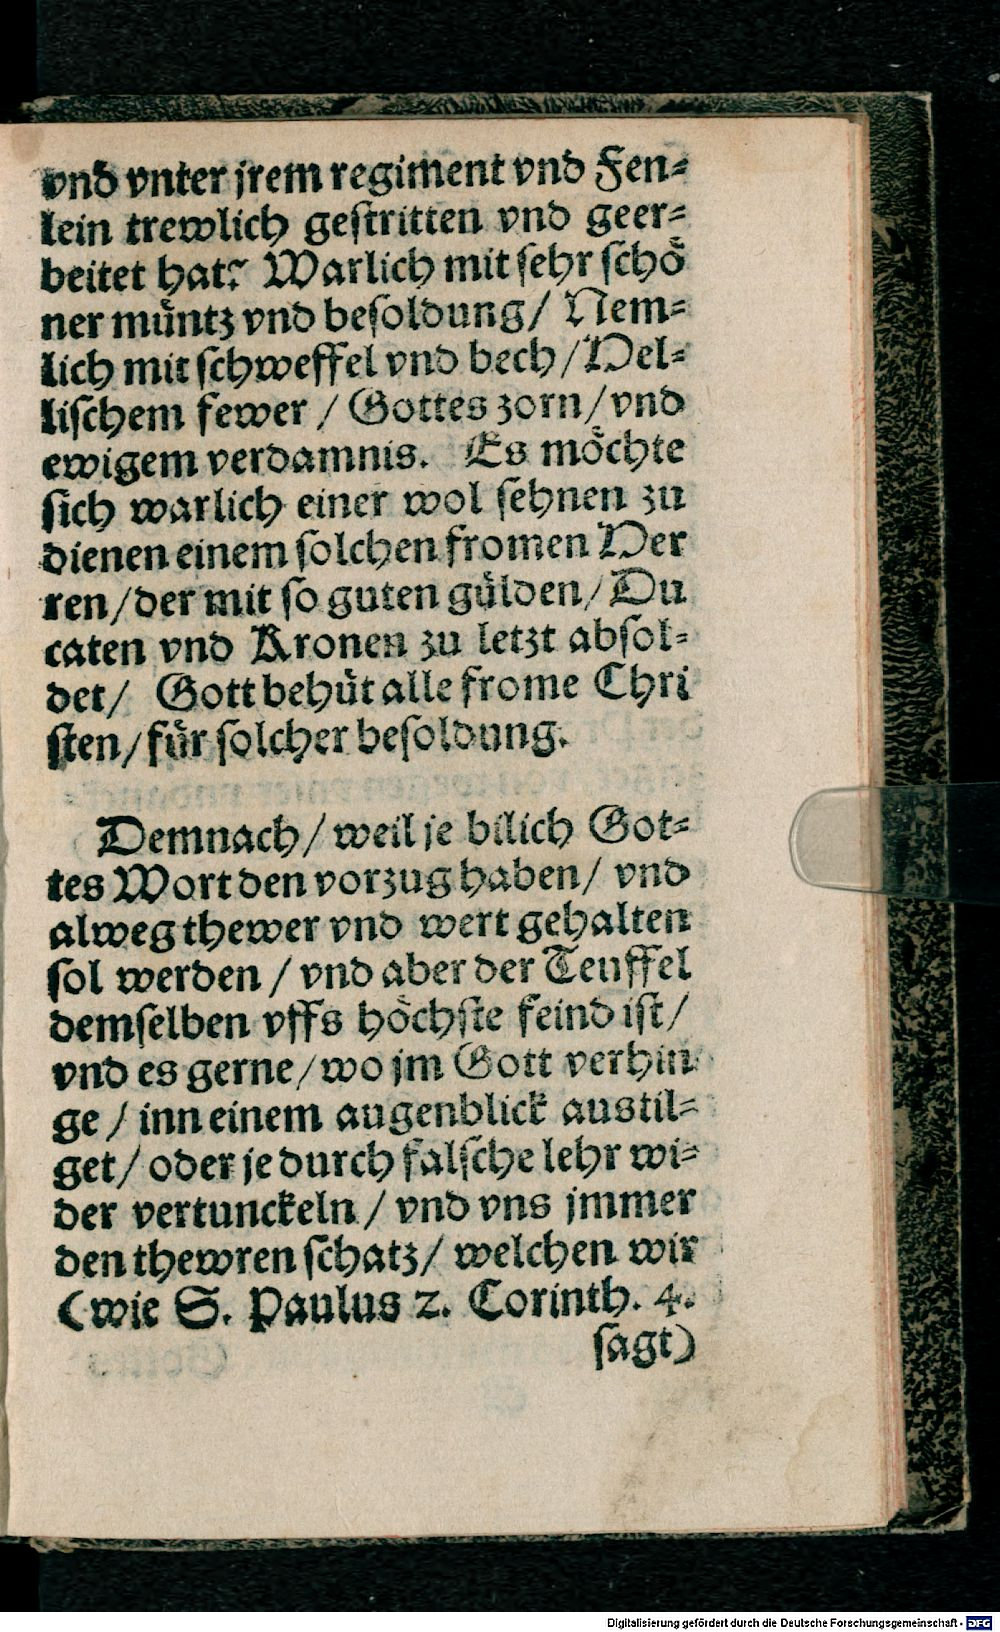 vnd vnter jrem regiment vnd Fen⸗
lein trewlich gestritten vnd geer⸗
beitet hat? Warlich mit sehr schö
ner müntz vnd besoldung/ Nem⸗
lich mit schweffel vnd bech/ Hel⸗
lischem fewer / Gottes zorn/ vnd
ewigem verdamnis. Es möchte
sich warlich einer wol sehnen zu
dienen einem solchen fromen Her
ren/ der mit so guten gülden/ Du
caten vnd Kronen zu letzt absol⸗
det/ Gott behüt alle frome Chri
sten/ für solcher besoldung.
Demnach/ weil je bilich Got⸗
tes Wort den vorzug haben/ vnd
alweg thewer vnd wert gehalten
sol werden / vnd aber der Teuffel
demselben vffs höchste feind ist/
vnd es gerne/ wo jm Gott verhin
ge / inn einem augenblick austil⸗
get/ oder je durch falsche lehr wi⸗
der vertunckeln / vnd vns jmmer
den thewren schatz/ welchen wir
(wie S. Paulus 2. Corinth. 4.
sagt)
Digitalisierung gefördert durch die Deutsche Forschungsgemeinschaft - DFG